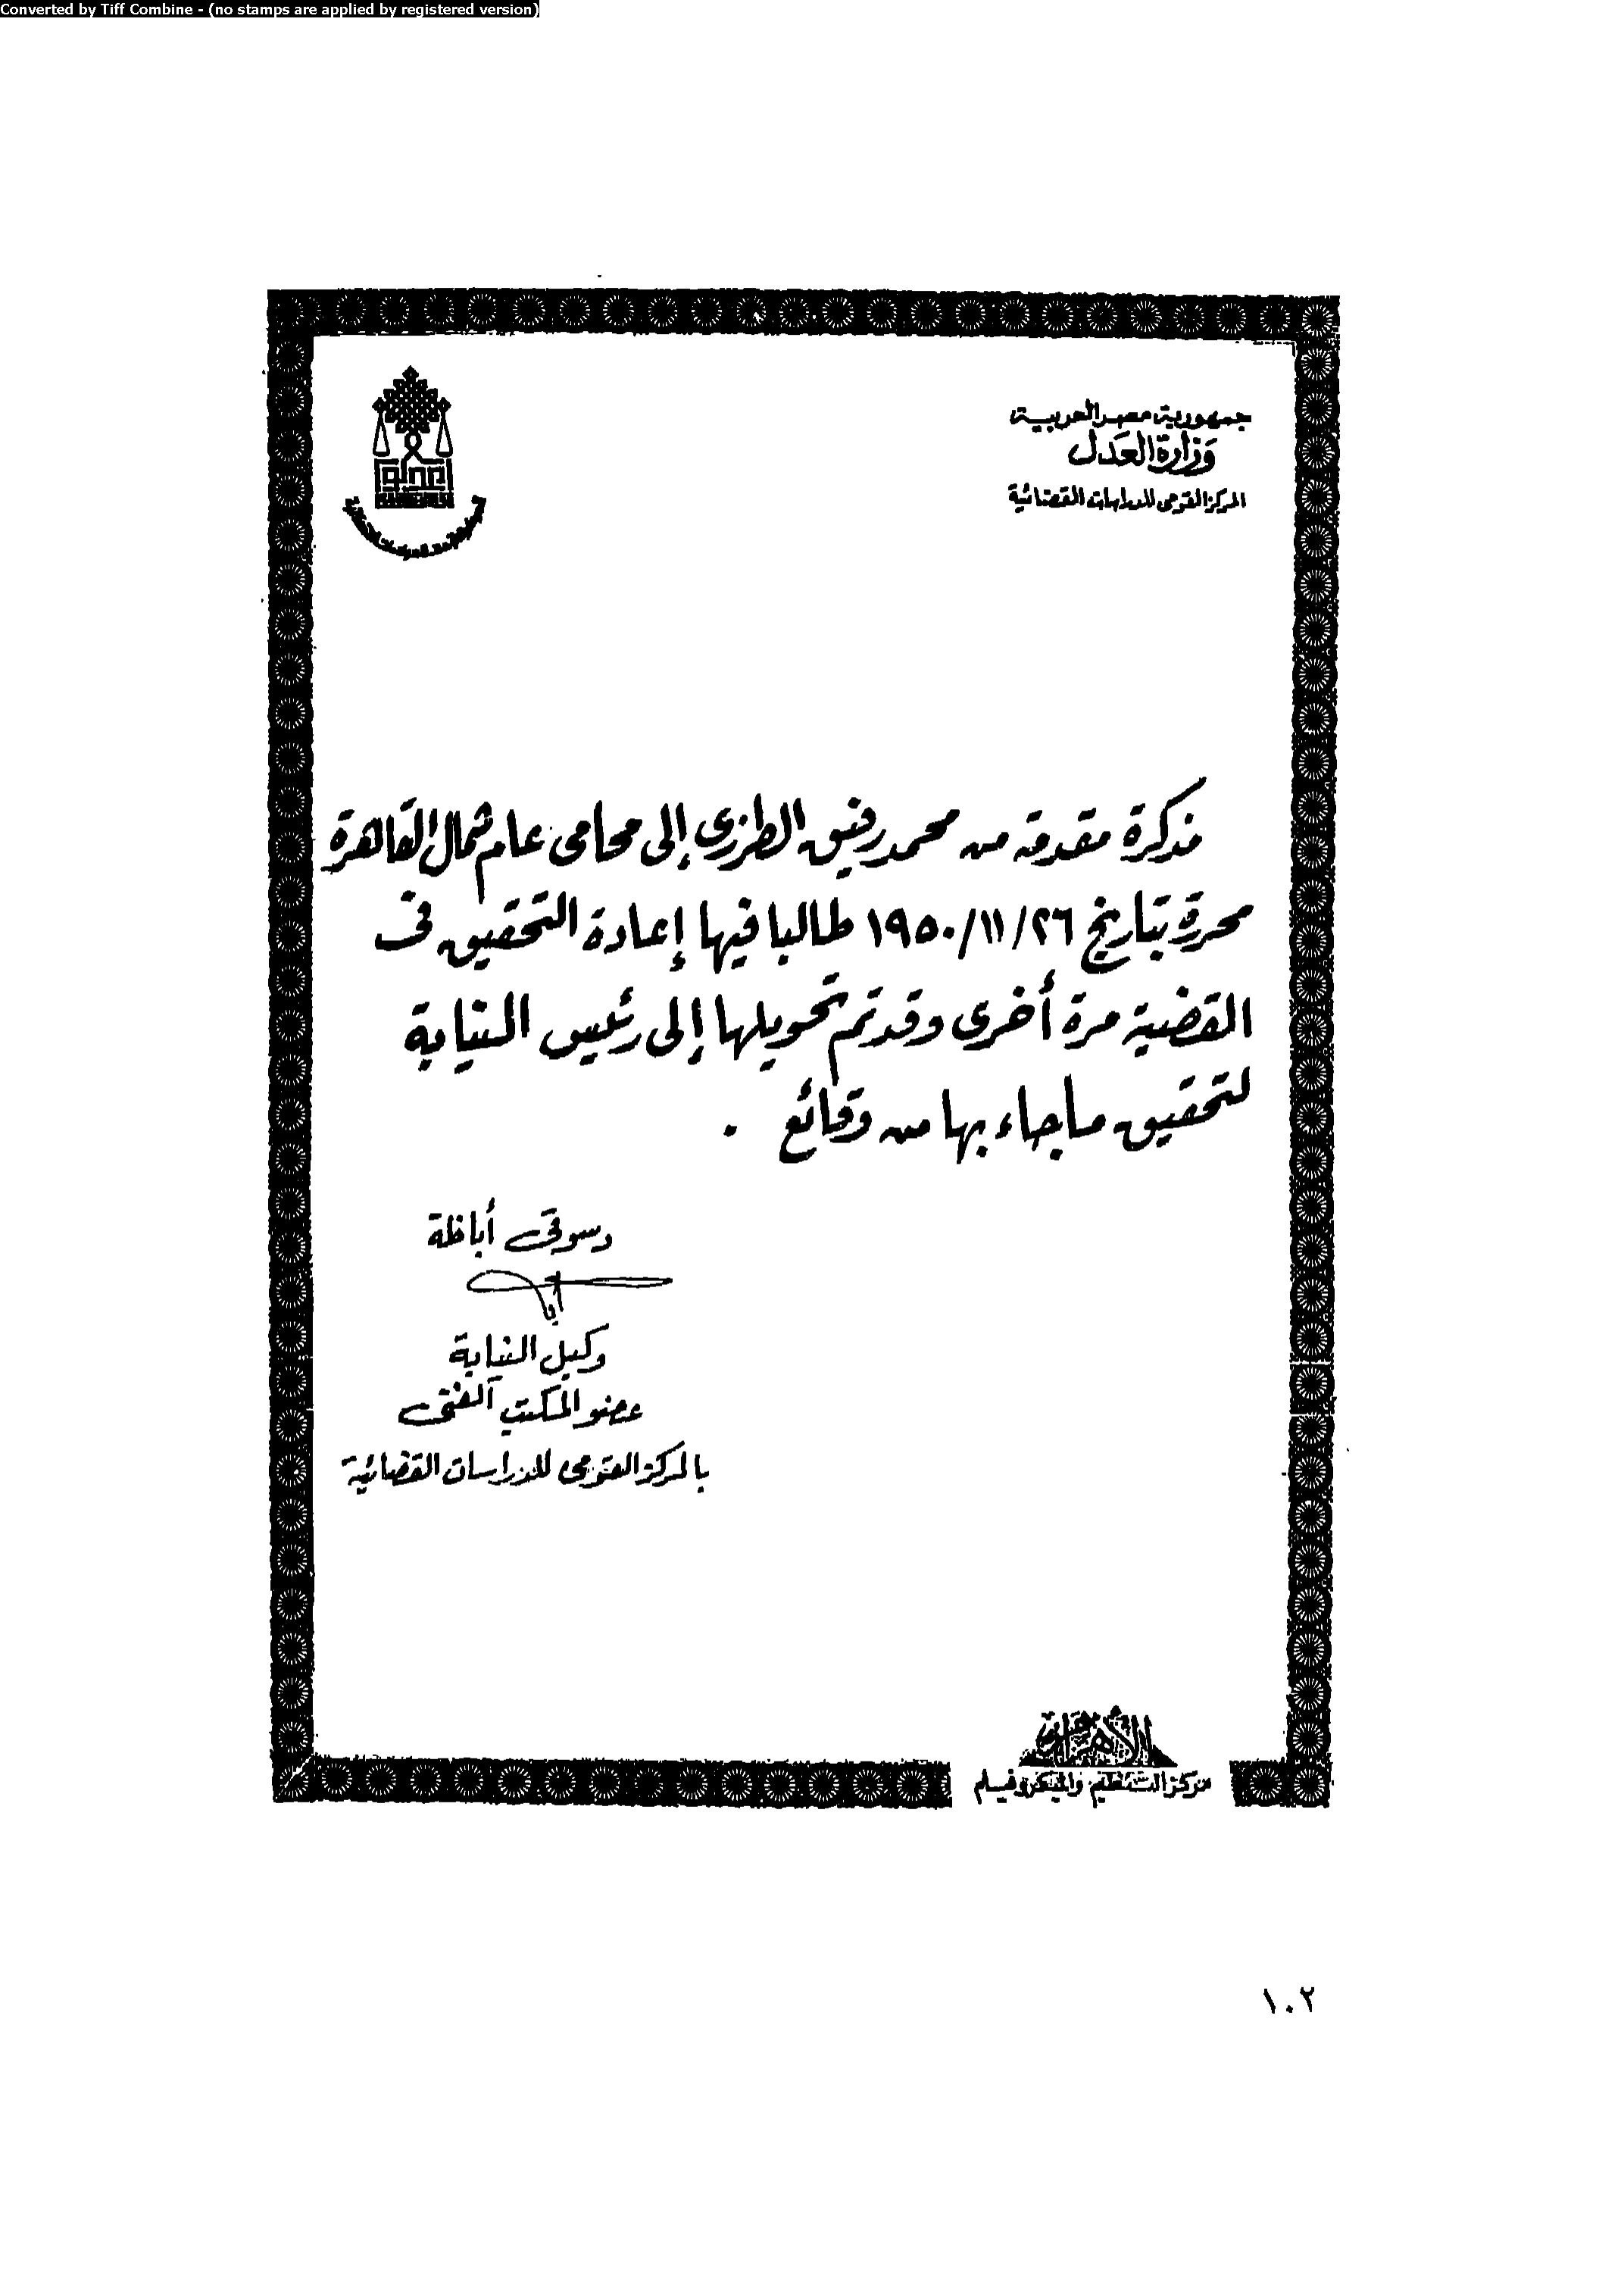 Converted by Tiff Combine - (no stamps are applied by registered version)
جمهورية مصر العربية
وزارة العدل
المركز القومى للدراسات القضائية
مذكرة مقدمة من محمد رفيق الطرزى إلى محامى عام شمال القاهرة
محررة بتاريخ ٢٦/١١/١٩٥٠ طالبا فيها إعادة التحقيق فى
القضية مرة أخرى وقد تم تحويلها إلى رئيس النيابة
لتحقيق ما جاء بها من وقائع .
دسوقى أباظة
وكيل النيابة
عضو المكتب الفنى
بالمركز القومى للدراسات القضائية
الأهرام
مركز التنظيم والميكروفيلم
١٠٢